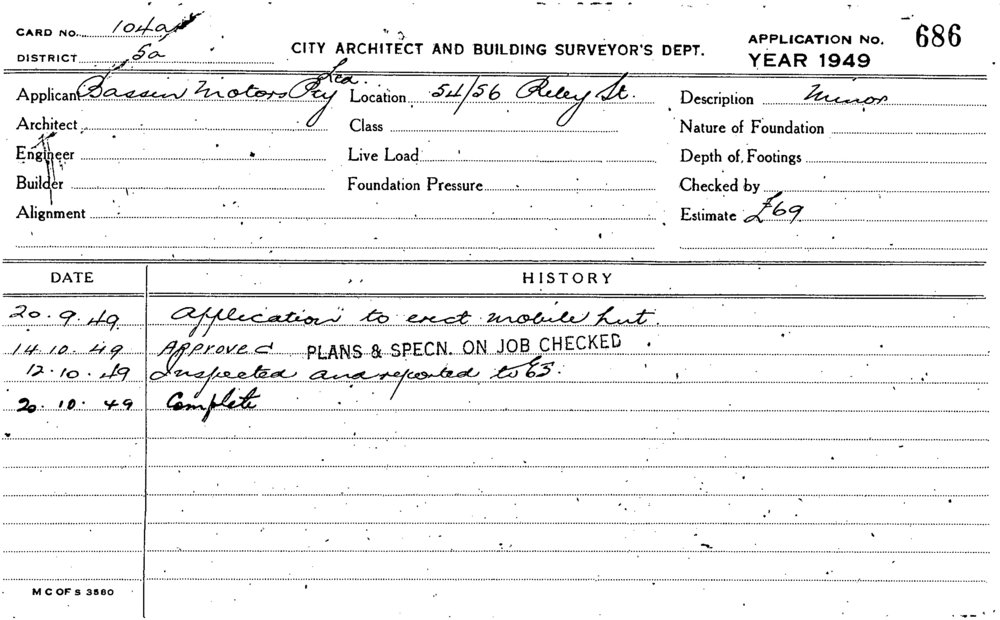 CARD NO. 104a
DISTRICT 5a
CITY ARCHITECT AND BUILDING SURVEYOR'S DEPT.
APPLICATION NO. 686
YEAR 1949
Applicant Bassin Motors Pty Ltd. Location 54/56 Riley St. Description Minor
Architect Class Nature of Foundation
Engineer Live Load Depth of Footings
Builder Foundation Pressure Checked by
Alignment Estimate £69
DATE HISTORY
20.9.49 Application to erect mobile hut.
14.10.49 Approved PLANS & SPECN. ON JOB CHECKED
12.10.49 Inspected and reported to
20.10.49 Complete
M C OF S 3560